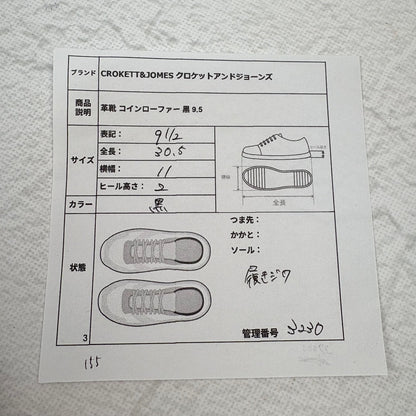 ブランド CROKETT&JOMES クロケットアンドジョーンズ
商品説明 革靴 コインローファー 黒 9.5
サイズ
表記： 9 1/2
全長： 30.5
横幅： 11
ヒール高さ： 2
全長
カラー 黒
状態
つま先：
かかと：
ソール：
履きジワ
3
管理番号 3230
155